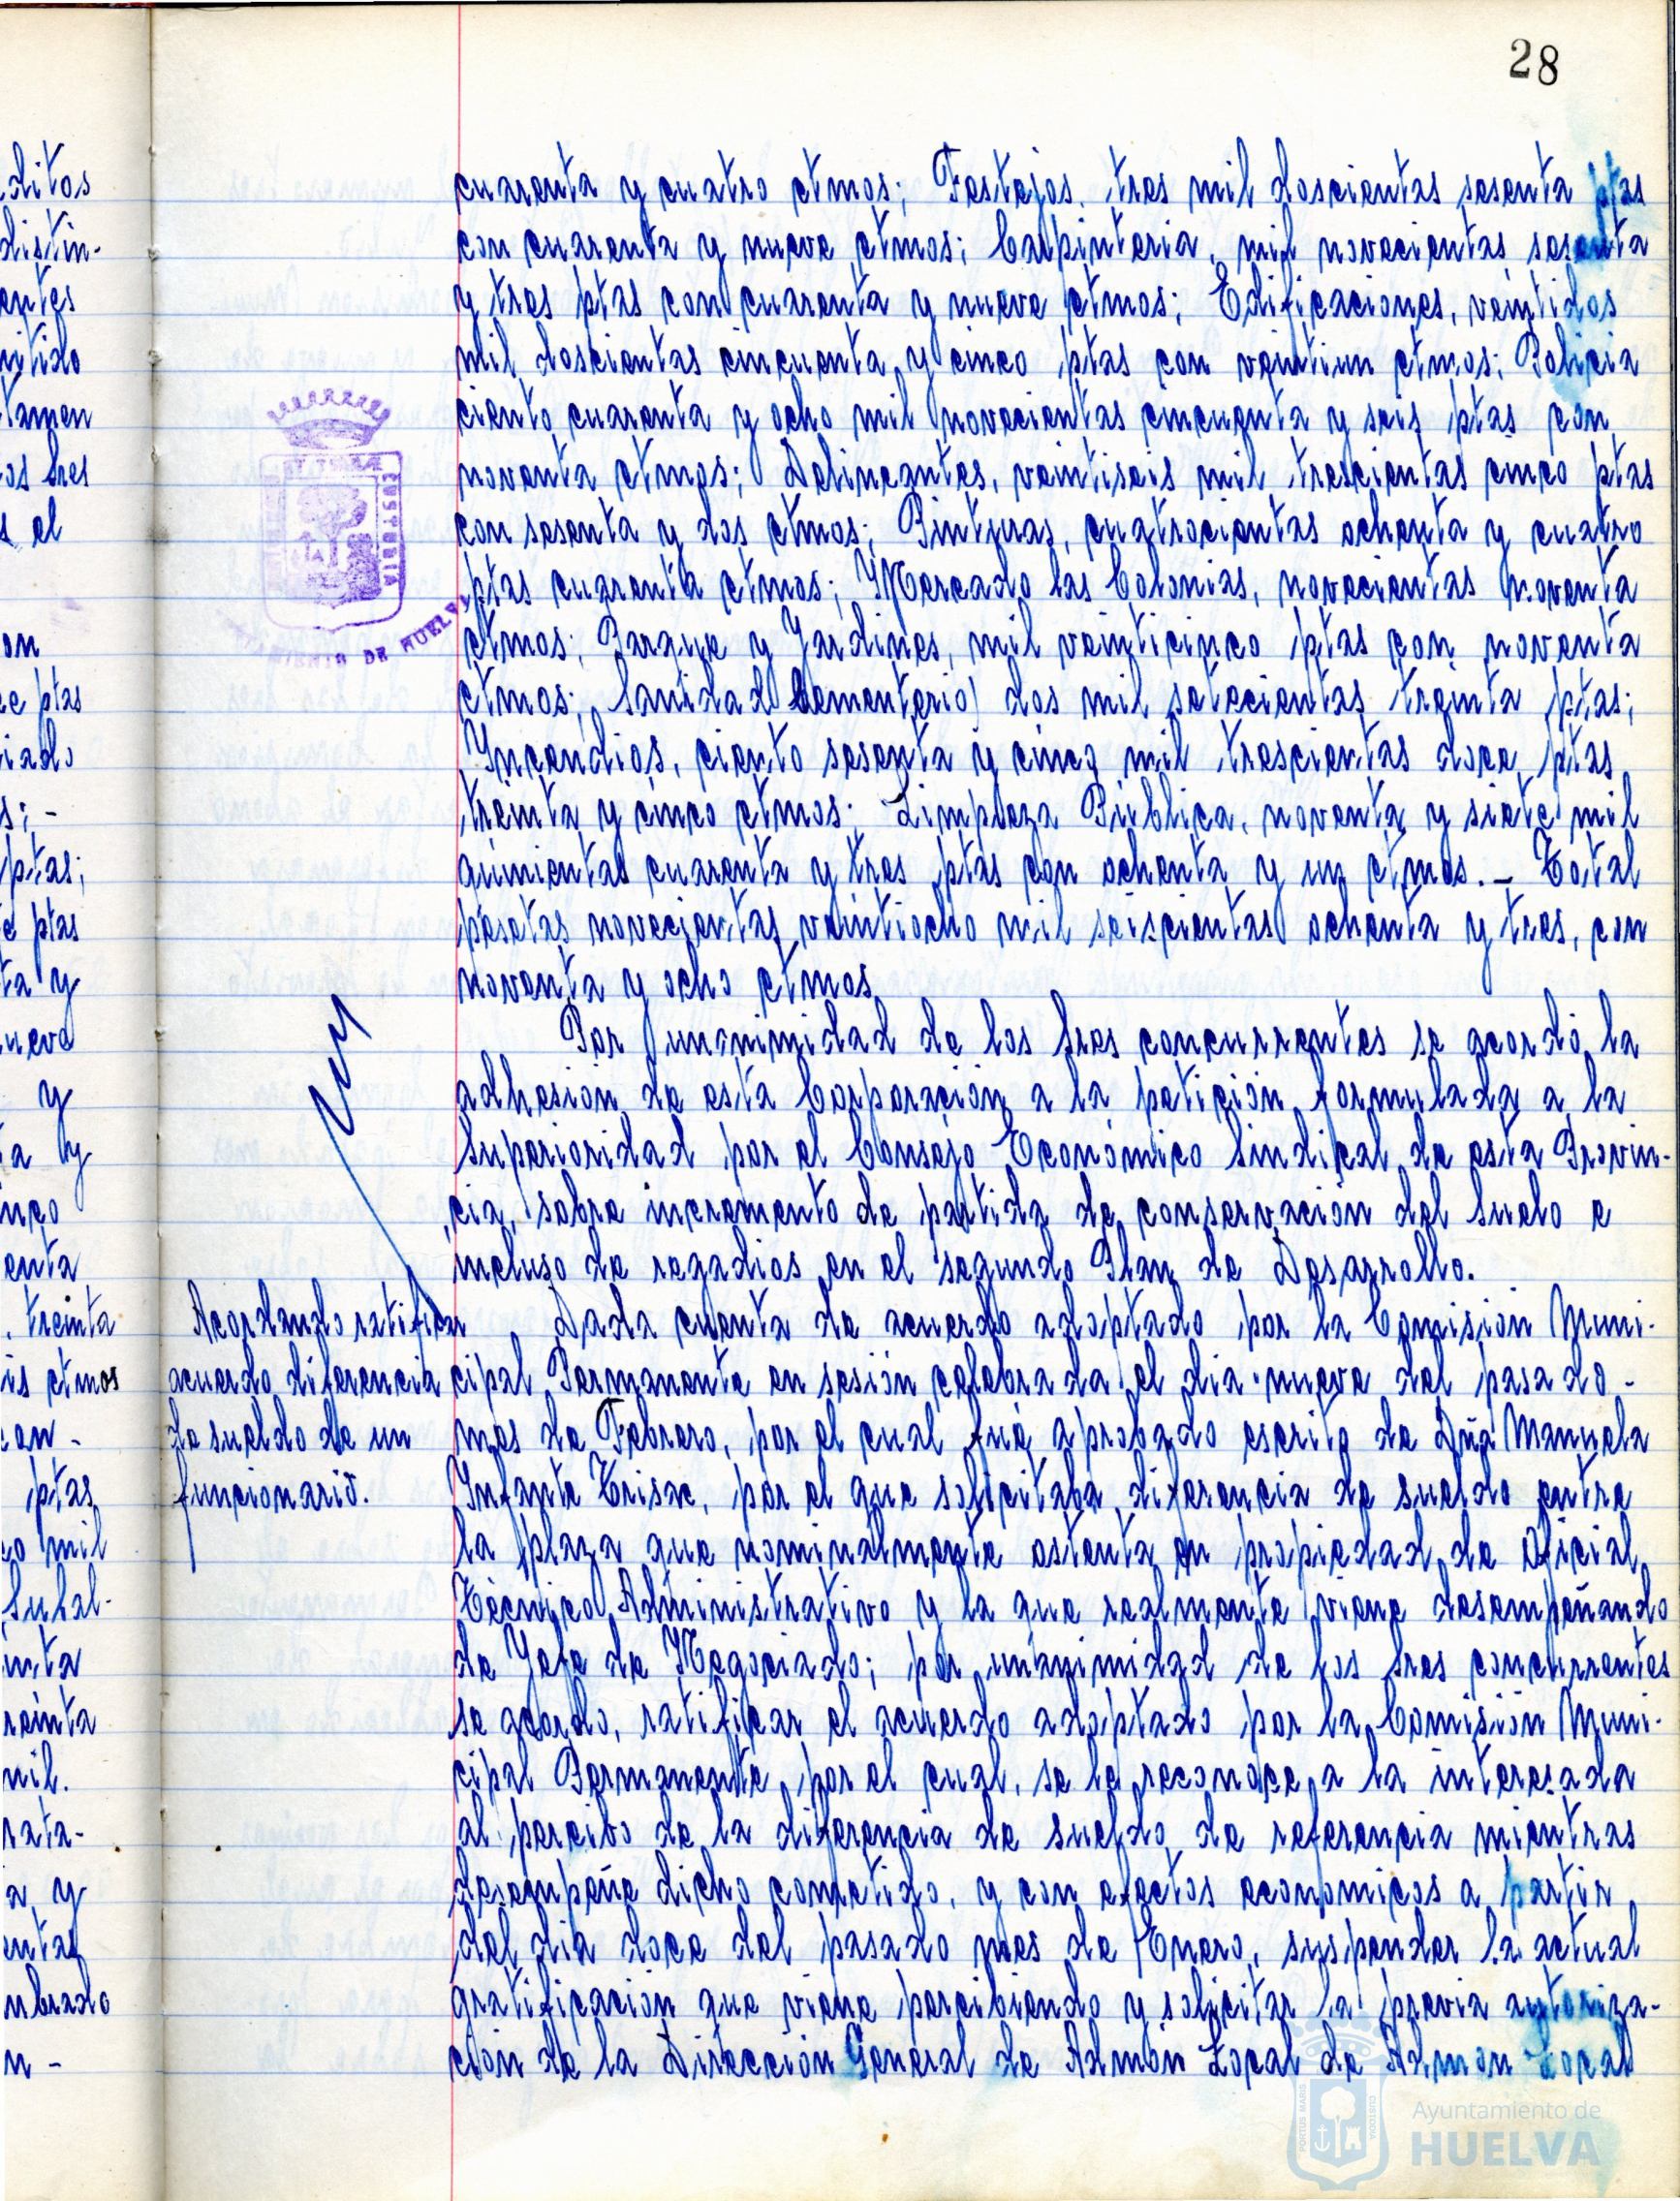 28
cuarenta y cuatro ctmos; Festejos. tres mil doscientas sesenta ptas
con cuarenta y nueve ctmos; Carpinteria, mil novecientas sesenta
y tres ptas con cuarenta y nueve ctmos; Edificaciones, veintidos
mil doscientas cincuenta y cinco ptas con veintiun ctmos; Policia
ciento cuarenta y ocho mil novecientas cincuenta y seis ptas con
noventa ctmos; Delineantes, veintiseis mil trescientas cinco ptas
con sesenta y dos ctmos; Pinturas, cuatrocientas ochenta y cuatro
ptas cuarenta ctmos; Mercado las Colonias, novecientas noventa
ctmos; Parque y Jardines, mil veinticinco ptas con noventa
ctmos; Sanidad Cementerio) dos mil setecientas treinta ptas;
Yncendios, ciento sesenta y cinco mil trescientas doce ptas
treinta y cinco ctmos. Limpieza Pública, noventa y siete mil
quinientas cuarenta y tres ptas con ochenta y un ctmos. - Total
pesetas novecientas veintiocho mil seiscientas ochenta y tres, con
noventa y ocho ctmos.
Por unanimidad de los Sres concurrentes se acordó la
adhesión de esta Corporación a la petición formulada a la
Superioridad por el Consejo Económico Sindical de esta Provin-
cia, sobre incremento de partida de conservación del Suelo e
incluso de regadios en el segundo Plan de Desarrollo.
Acordando ratificar
acuerdo diferencia
de sueldo de un
funcionario.
Dada cuenta de acuerdo adoptado por la Comisión Muni-
cipal Permanente en sesión celebrada el dia nueve del pasado -
mes de Febrero, por el cual fué aprobado escrito de Dña Manuela
Infante Trisac, por el que solicitaba diferencia de sueldo entre
la plaza que nominalmente ostenta en propiedad de Oficial
Técnico Administrativo y la que realmente viene desempeñando
de Yefe de Negociado; por unanimidad de los Sres concurrentes
se acordo, ratificar el acuerdo adoptado por la Comisión Muni-
cipal Permanente, por el cual, se le reconoce a la interesada
al percibo de la diferencia de sueldo de referencia mientras
desempeñe dicho cometido, y con efectos economicos a partir
del dia doce del pasado mes de Enero, suspender la actual
gratificación que viene percibiendo y solicitar la previa autoriza-
ción de la Dirección General de Admón Local de Admon Local
Ayuntamiento de
HUELVA